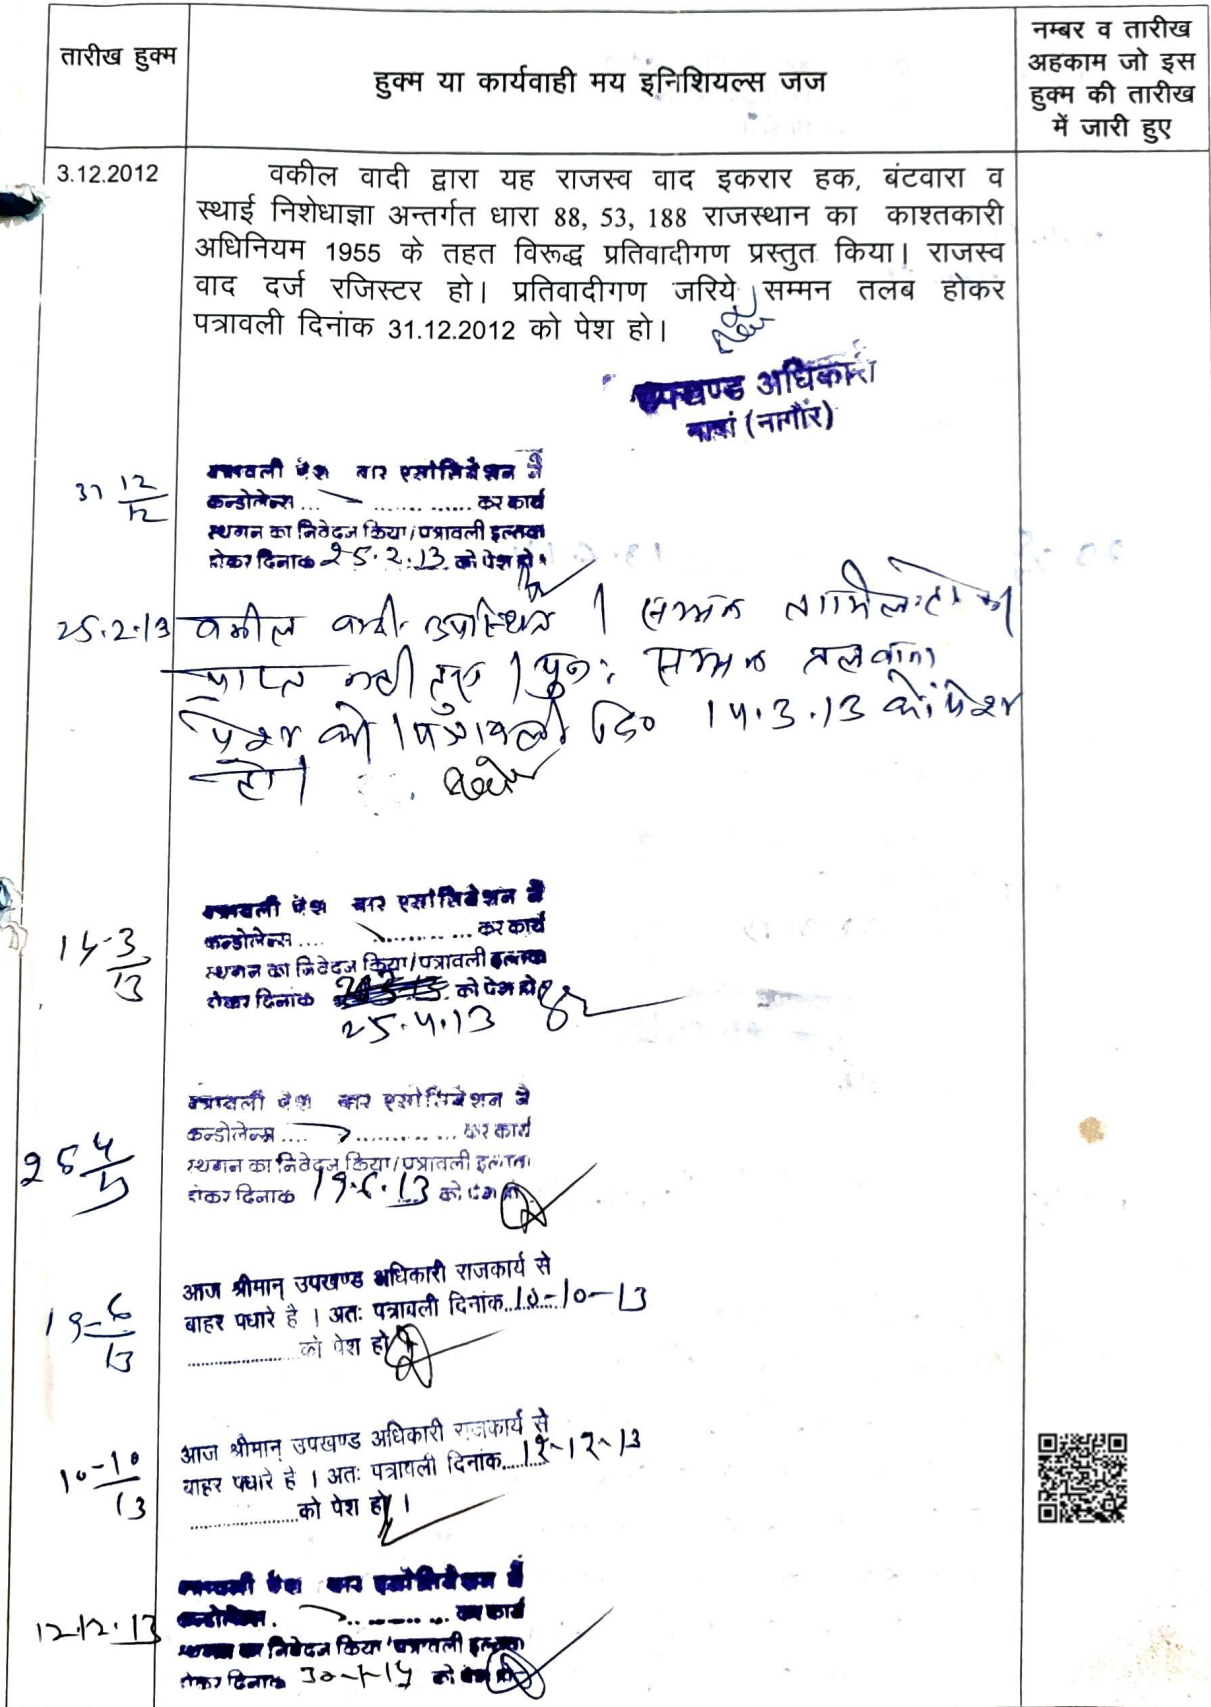 तारीख हुक्म
हुक्म या कार्यवाही मय इनिशियल्स जज
नम्बर व तारीख
अहकाम जो इस
हुक्म की तारीख
में जारी हुए
3.12.2012
वकील वादी द्वारा यह राजस्व वाद इकरार हक, बंटवारा व
स्थाई निशेधाज्ञा अन्तर्गत धारा 88, 53, 188 राजस्थान का काश्तकारी
अधिनियम 1955 के तहत विरूद्ध प्रतिवादीगण प्रस्तुत किया। राजस्व
वाद दर्ज रजिस्टर हो। प्रतिवादीगण जरिये सम्मन तलब होकर
पत्रावली दिनांक 31.12.2012 को पेश हो।
उपखण्ड अधिकारी
नावां (नागौर)
31 12/12
पत्रावली पेश बार एसोसियेशन ने
कन्डोलेन्स ... ............ कर कार्य
स्थगन का निवेदन किया/पत्रावली इल्तवा
होकर दिनांक 25.2.13 को पेश हो।
25.2.13
वकील वादी उपस्थित। सम्मन तामिल होकर
प्राप्त नही हुए। पुन: सम्मन तलवाना
पेश करे। पत्रावली दि० 14.3.13 को पेश
हो।
14-3/13
पत्रावली पेश बार एसोसियेशन ने
कन्डोलेन्स .... ............ कर कार्य
स्थगन का निवेदन किया/पत्रावली इल्तवा
होकर दिनांक को पेश हो
25.4.13
25 4/13
पत्रावली पेश बार एसोसियेशन ने
कन्डोलेन्स .... ............ कर कार्य
स्थगन का निवेदन किया/पत्रावली इल्तवा
होकर दिनांक 19.6.13 को पेश हो
19-6/13
आज श्रीमान् उपखण्ड अधिकारी राजकार्य से
बाहर पधारे है । अतः पत्रावली दिनांक..10-10-13
.....................को पेश हो
10-10/13
आज श्रीमान् उपखण्ड अधिकारी राजकार्य से
बाहर पधारे है । अतः पत्रावली दिनांक......12-12-13
.....................को पेश हो।
12.12.13
पत्रावली पेश बार एसोसियेशन ने
कन्डोलेन्स. ............ कर कार्य
स्थगन का निवेदन किया/पत्रावली इल्तवा
होकर दिनांक 30-1-14 को पेश हो